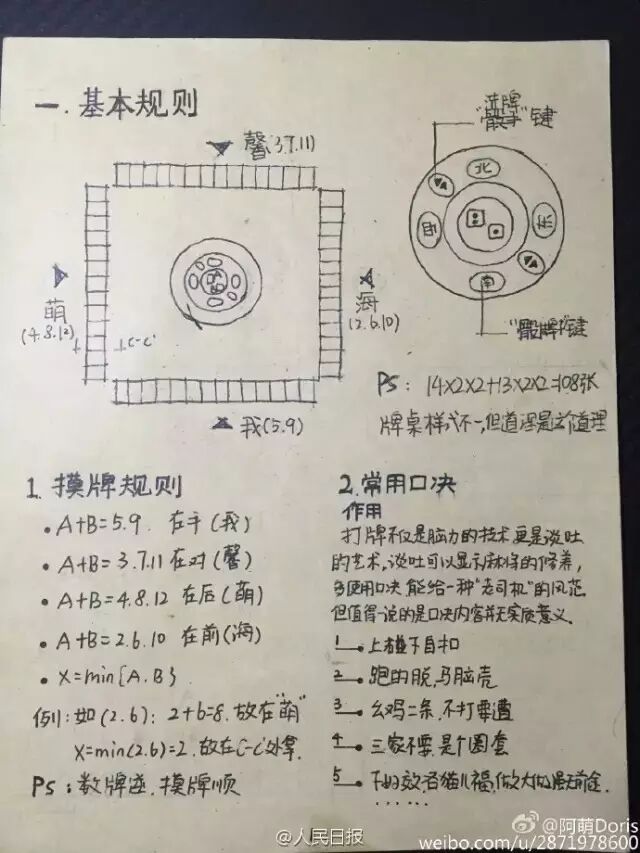 一.基本规则
馨(3.7.11)
萌
(4.8.12)
C-C'
海
(2.6.10)
我(5.9)
洗牌
"骰子"键
北
西
东
南
键
PS: 14×2×2+13×2×2=108张
牌桌样式不一,但道理是这个道理
1.摸牌规则
• A+B=5.9. 在手(我)
• A+B=3.7.11 在对(馨)
• A+B=4.8.12 在后(萌)
• A+B=2.6.10 在前(海)
• X=min{A.B}
例:如(2.6): 2+6=8.放在"萌"
X=min(2.6)=2.放在C-C'处拿.
Ps:数牌逆.摸牌顺
2.常用口决
作用
打牌不仅是脑力的技术更是谈吐
的艺术,谈吐可以显示麻将的修养,
多使用口决能给一种"老司机"的风范.
但值得一说的是口决内容并无实质意义.
1 上碰下自扣
2 跑的脱,马脑壳
3 幺鸡二条,不打要遭
4 三家不要,是个圈套
5 猫儿福,做大
......
@人民日报
@阿萌Doris
weibo.com/u/2871978600